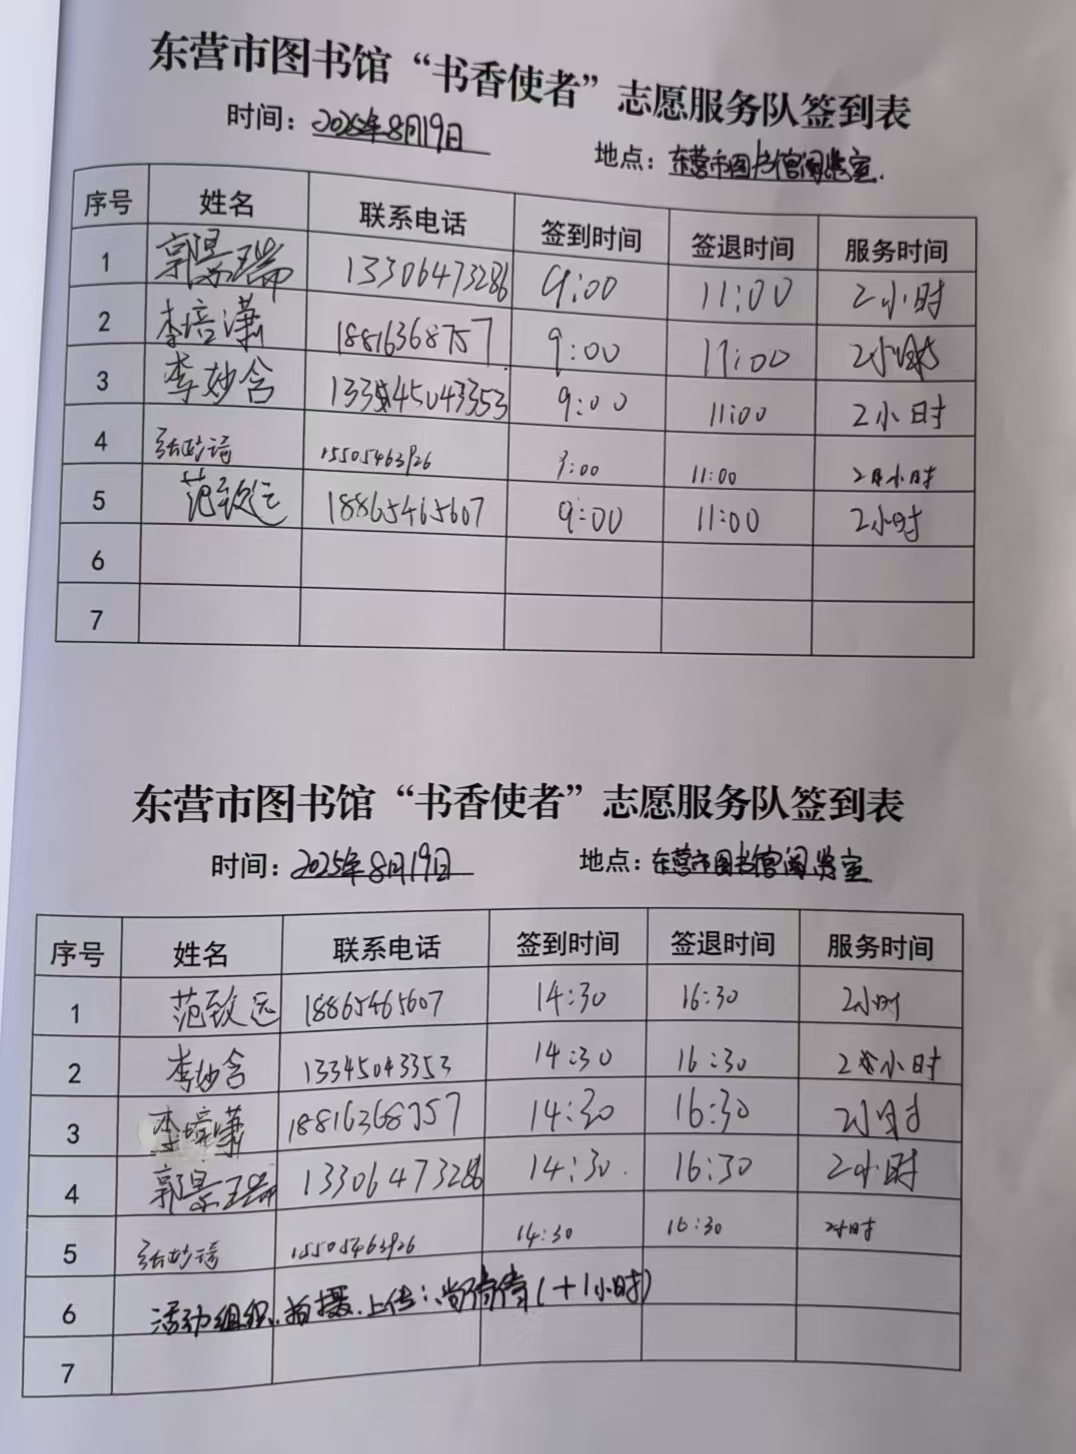 东营市图书馆“书香使者”志愿服务队签到表
时间：2025年8月19日 地点：东营市图书馆阅览室.
序号 姓名 联系电话 签到时间 签退时间 服务时间
1 郭景瑞 13306473286 9:00 11:00 2小时
2 李培潇 18816368757 9:00 11:00 2小时
3 李妙含 13345043353 9:00 11:00 2小时
4 张妙 15505463926 9:00 11:00 2小时
5 范致远 18865465607 9:00 11:00 2小时
6
7
东营市图书馆“书香使者”志愿服务队签到表
时间：2025年8月19日 地点：东营市图书馆阅览室
序号 姓名 联系电话 签到时间 签退时间 服务时间
1 范致远 18865465607 14:30 16:30 2小时
2 李妙含 13345043353 14:30 16:30 2小时
3 李培潇 18816368757 14:30 16:30 2小时
4 郭景瑞 13306473286 14:30. 16:30 2小时
5 张妙 15505463926 14:30 16:30 2小时
6 活动组织.拍摄.上传：尚倩倩（+1小时）
7